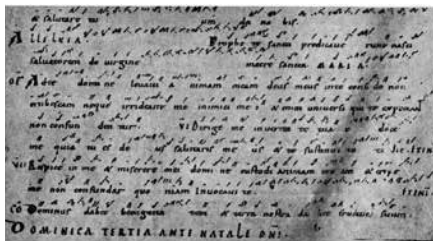 & salutare tu um da no bis.
ALLELUIA Prophe te sancti predicaue runt nasci
saluatorem de uirgine matre sancta MARIA
OF Ad te domi ne leuaui animam meam deus meus in te con fi do non
erubescam neque irrideant me inimici mei & enim uniuersi qui te expectant
non confun den tur. VI Dirige me in ueritate tua & doce
me quia tu es de us salutaris me us & te sustinui
VII Respice in me & miserere mei domi ne custodi animam me am & eripe
me non confundar quo niam inuocaui te.
CO Dominus dabit benignita tem & terra nostra da bit fructum suum.
DOMINICA TERTIA ANTE NATALE DNI.